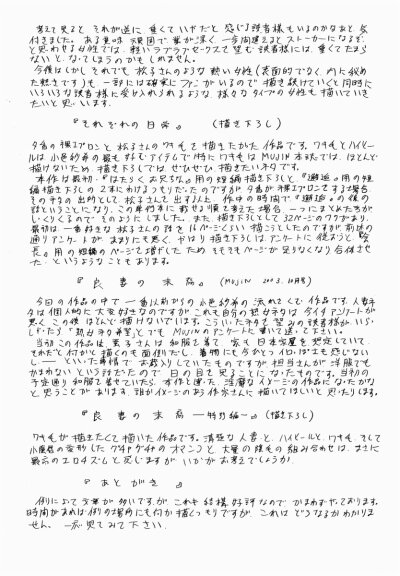 考えて見ると それが逆に 重くていやだと 感じる読者様もいるのかなあと気
付きました。ある意味 頑固で 業が深く 一歩間違えるとストーカーになるぞ
と思わせる女性では、軽いラブラブセックスを望む読者様には、重くてたまら
ないと、なってしまうのかもしれません。
今後はしかし それでも 松子さんのような 熱い女性(表面的でなく 内に秘め
た熱さです)も 一部には確実にファンがいるので 描き続けていくと同時に
いろいろな読者様に受け入れられるような、様々なタイプの女性も描いていき
たいと思います。
『それぞれの日常』 (描き下ろし)
夕香の裸エプロンと 松子さんのワキ毛を描きたかった作品です。ワキ毛とハイヒー
ルは小色紗希の最も好むアイテムで 特にワキ毛はMUJIN本誌では、ほとんど
描けないため、描き下ろしでは ぜひぜひ描きたいネタです。
本作は最初 用の短編描き下ろしと、『邂逅』用の短
編描き下ろしの2本にわけるつもりだったのですが 夕香が裸エプロンをする場合、
その
後の
話ということになり、この単行本に 載せる順で考えた場合 一つにまとめた方が
しっくりくるので そのようにしました。また、描き下ろしとして 32ページのワクがあり、
最初は一番好きな松子さんの話を16ページくらい描こうとしたのですが 前述の
通りアンケートが あまりにも悪く、やはり 描き下ろしはアンケートに従おうと
用の短編のページを増やしたため そもそもページが足りなくなり 合体させ
た、というようなこともあります。
『良妻の末裔』 (MUJIN 2003.10月号)
今回の作品の中で 一番以前からの小色紗希の流れをくむ作品です。人妻ネ
タは個人的に大変好きなのですが これも自分の想う人妻は 今イチアンケートが
悪く この後 ほとんど描けないでいます。こういったネタを望みの読者様が いら
MUJINのアンケートに書いて送って下さい。
当初この作品は 和服を着て 家も日本家屋を想定していて、
それだと 描くのも面倒だし、着物にも今ひとつ
ない
し――といった事情で お蔵入りしていたものですが担当さんが 洋服でも
かまわないという話だったので 日の目を見ることになったものです。当初の
予定通り 和服を着せていたら、本作と違った、淫靡なイメージの作品になったかな
と思うことがあります。誰かイメージのあう作家さんに描いてほしいと思ったりします。
『良妻の末裔 ―特別編―』 (描き下ろし)
ワキ毛が描きたくて描いた作品です。清楚な人妻と、ハイヒールと、ワキ毛、そして
小陰唇の変形した オマンコと 大量の陰毛の組み合わせは、まさに
エロイズムと感じますが いかがお考えでしょうか
『あとがき』
例によって文章が多いですが これも結構好評なので かまわずやっております。
時間があれば 例の場所にも何か描くつもりですが、これはどうなるかわかりま
せん。一応見てみて下さい。